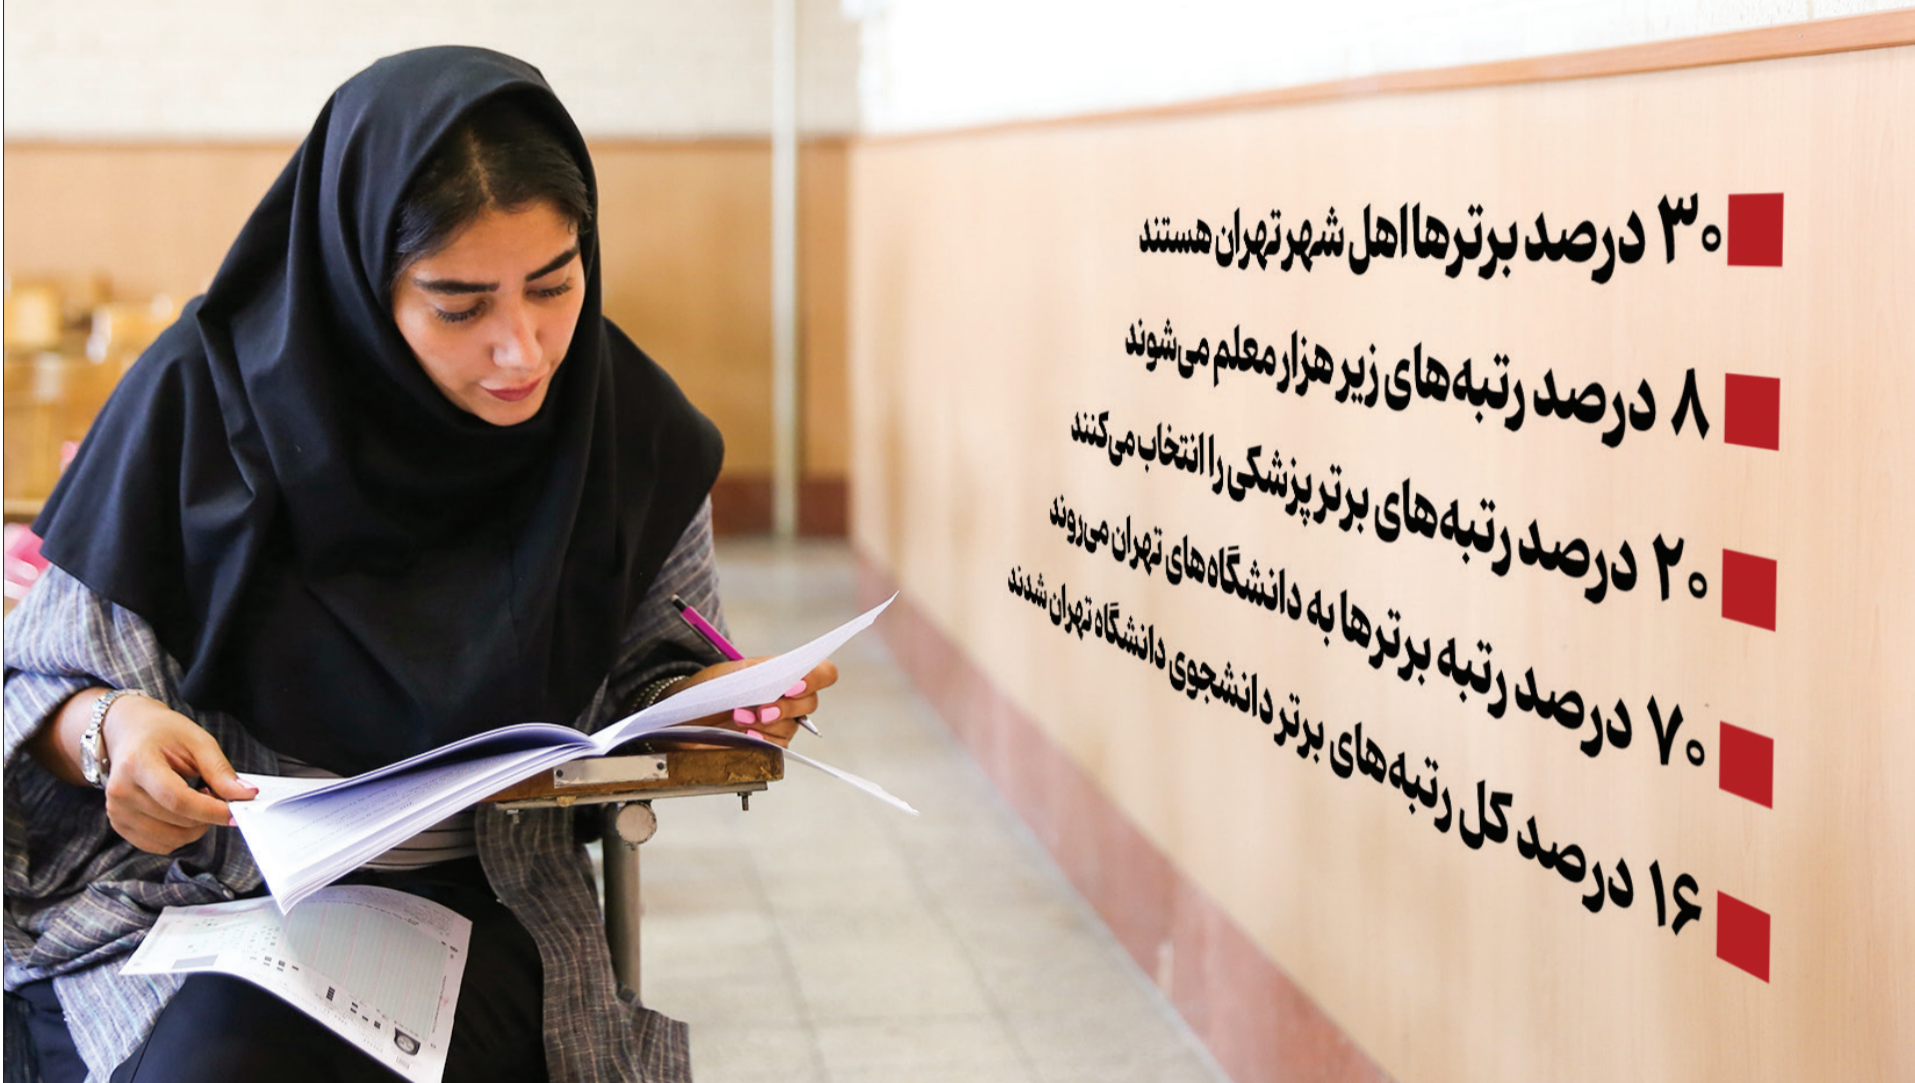 ۳۰ درصد برترها اهل شهر تهران هستند
۸ درصد رتبه‌های زیر هزار معلم می‌شوند
۲۰ درصد رتبه‌های برتر پزشکی را انتخاب می‌کنند
۷۰ درصد رتبه برترها به دانشگاه‌های تهران می‌روند
۱۶ درصد کل رتبه‌های برتر دانشجوی دانشگاه تهران شدند